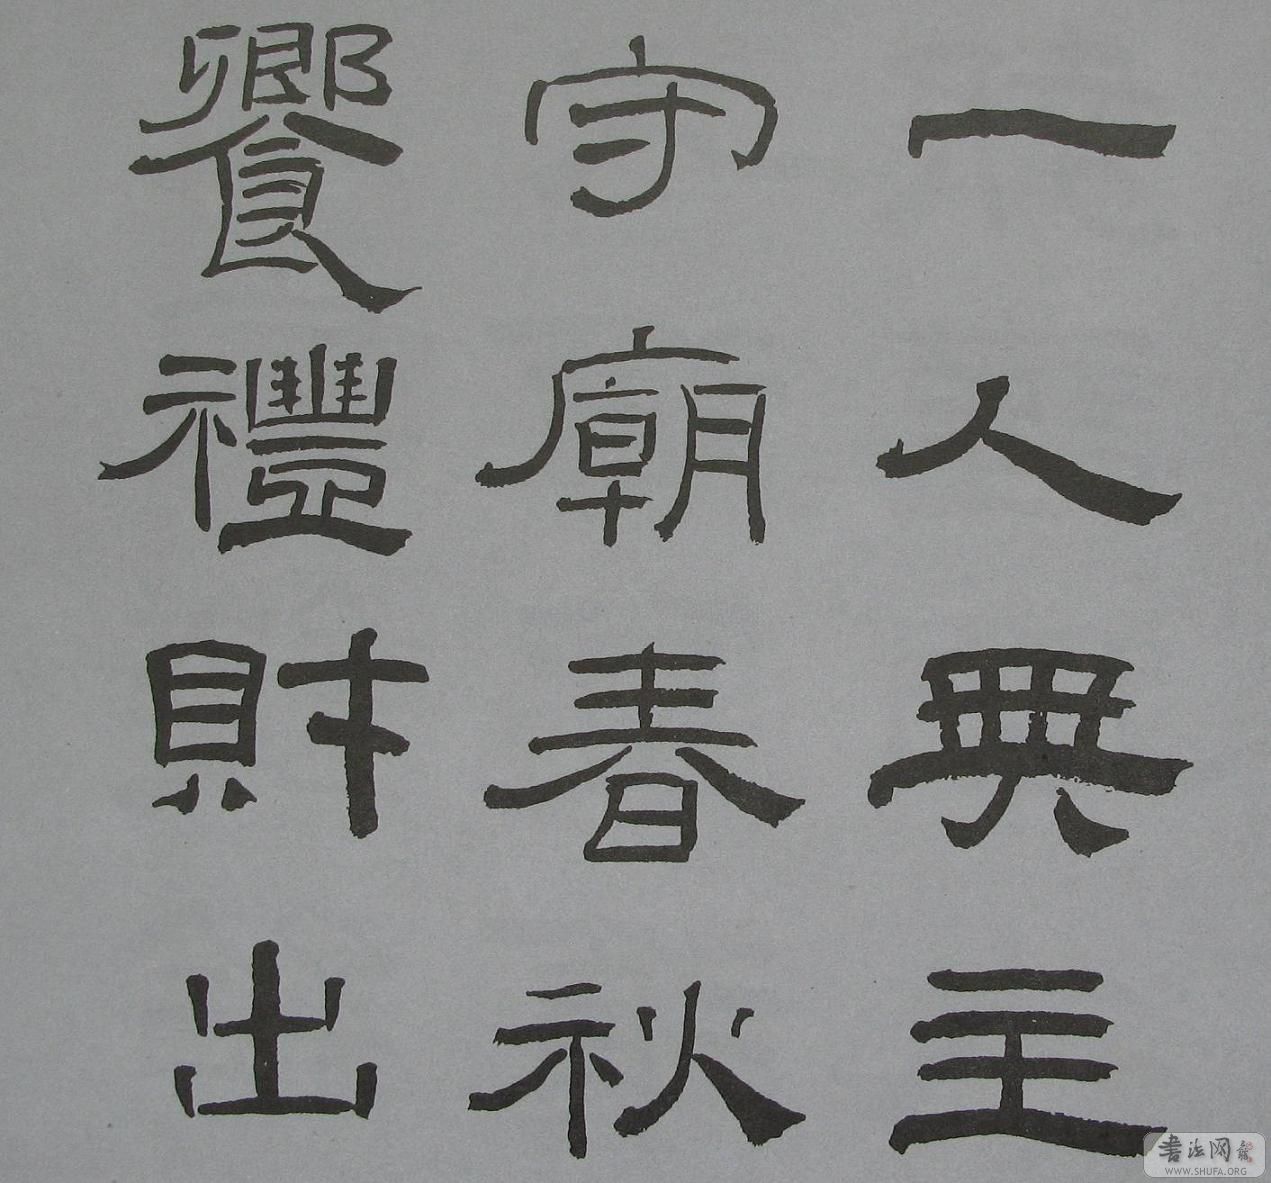 一人典主
守廟春秋
饗禮財出
書法网
WWW.SHUFA.ORG